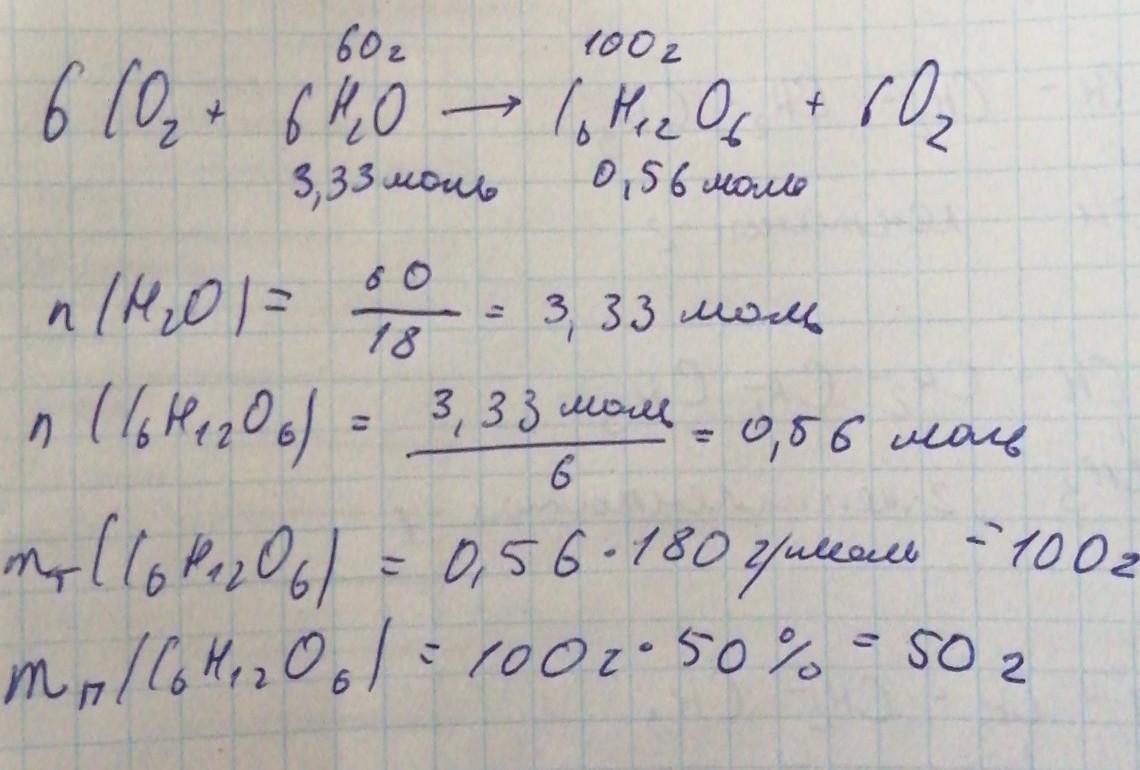 60г 100г
6 CO₂ + 6H₂O → C₆H₁₂O₆ + 6O₂
3,33 моль 0,56 моль
n(H₂O) = 60/18 = 3,33 моль
n(C₆H₁₂O₆) = 3,33 моль/6 = 0,56 моль
mт(C₆H₁₂O₆) = 0,56 · 180 г/моль = 100 г
mп(C₆H₁₂O₆) = 100 г · 50% = 50 г